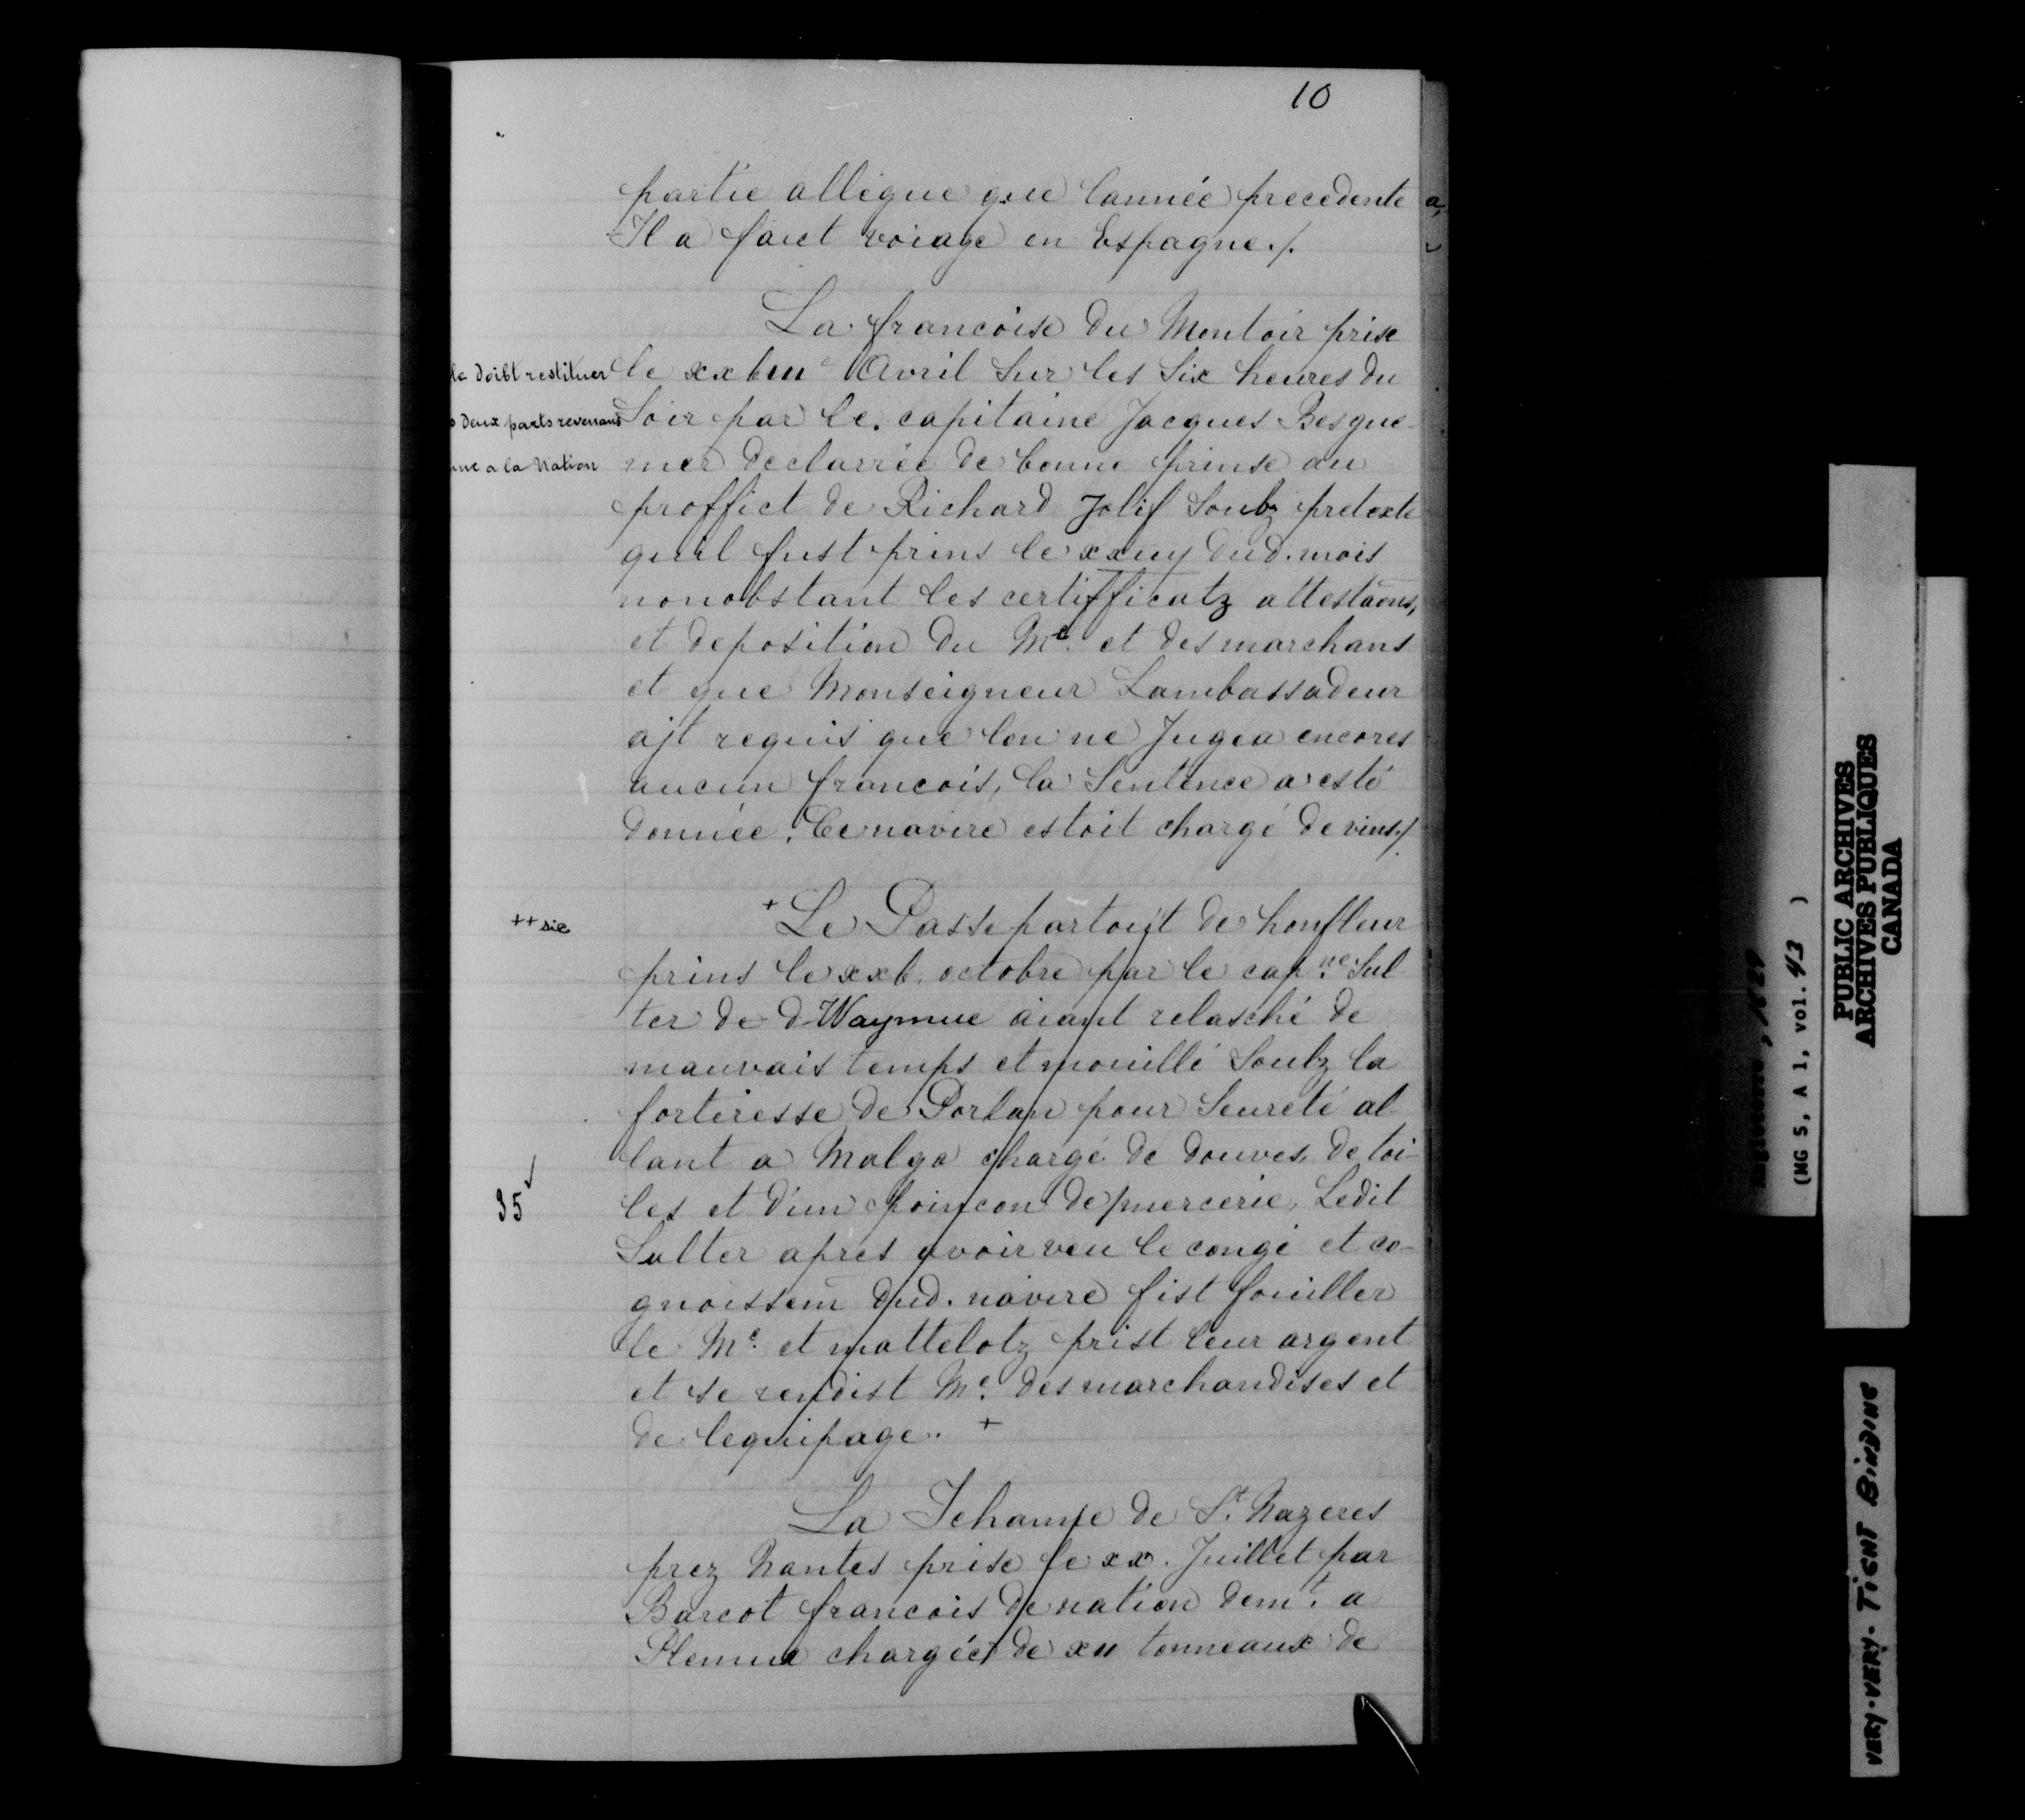 10
partie allégue que lannée precedente
Il a faict voiage en Espagne./.
La francoise du Montoir prise
le xxbiiie Avril sur les six heures du
Soir par le. capitaine Jacques Besgue-
mer declarrée de bonne prinse au
proffict de Richard Jolif soubz pretexte
quil fust prins le xxiiij dud. mois
nonobstant les certifficatz attestaons,
et deposition du Me. et des marchans
et que Monseigneur Lambassadeur
ajt requis que lon ne Jugea encores
aucun francois, la Sentence a esté
donnée. Ce navire estoit chargé de vins./.
le doibt restituer
deux parts revenans
a la Nation
++ sic
+ Le Passepartoijt de honfleur
prins le xxb. octobre par le capne. Sal
ter de d Waymue aiant relasché de
mauvais temps et mouillé soubz la
forteresse de Porlan pour seureté al-
lant a Malga chargé de douves, de toi-
les et d'un poincon de mercerie, Ledit
Salter apres avoir veu le congé et co-
gnoissem dud. navire fist fouiller
le Me. et mattelotz prist leur argent
et se rendist Me. des marchandises et
de lequipage. +
35
La Jehanne de St. Nazeres
prez Nantes prise le xx. Juillet par
Barcot francois de nation demt. a
Plemue chargée de xii tonneaux de
(MG 5, A 1, vol. 43 )
PUBLIC ARCHIVES
ARCHIVES PUBLIQUES
CANADA
VERY-VERY-TIGHT BINDING